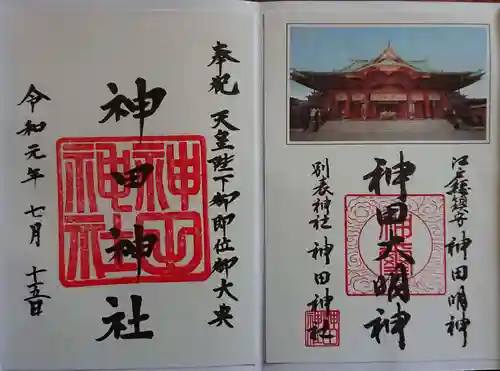 江戸総鎮守 神田明神
神田大明神
別表神社 神田神社
奉祝 天皇陛下御即位御大典
神田神社
神田神社
令和元年 七月 十五日